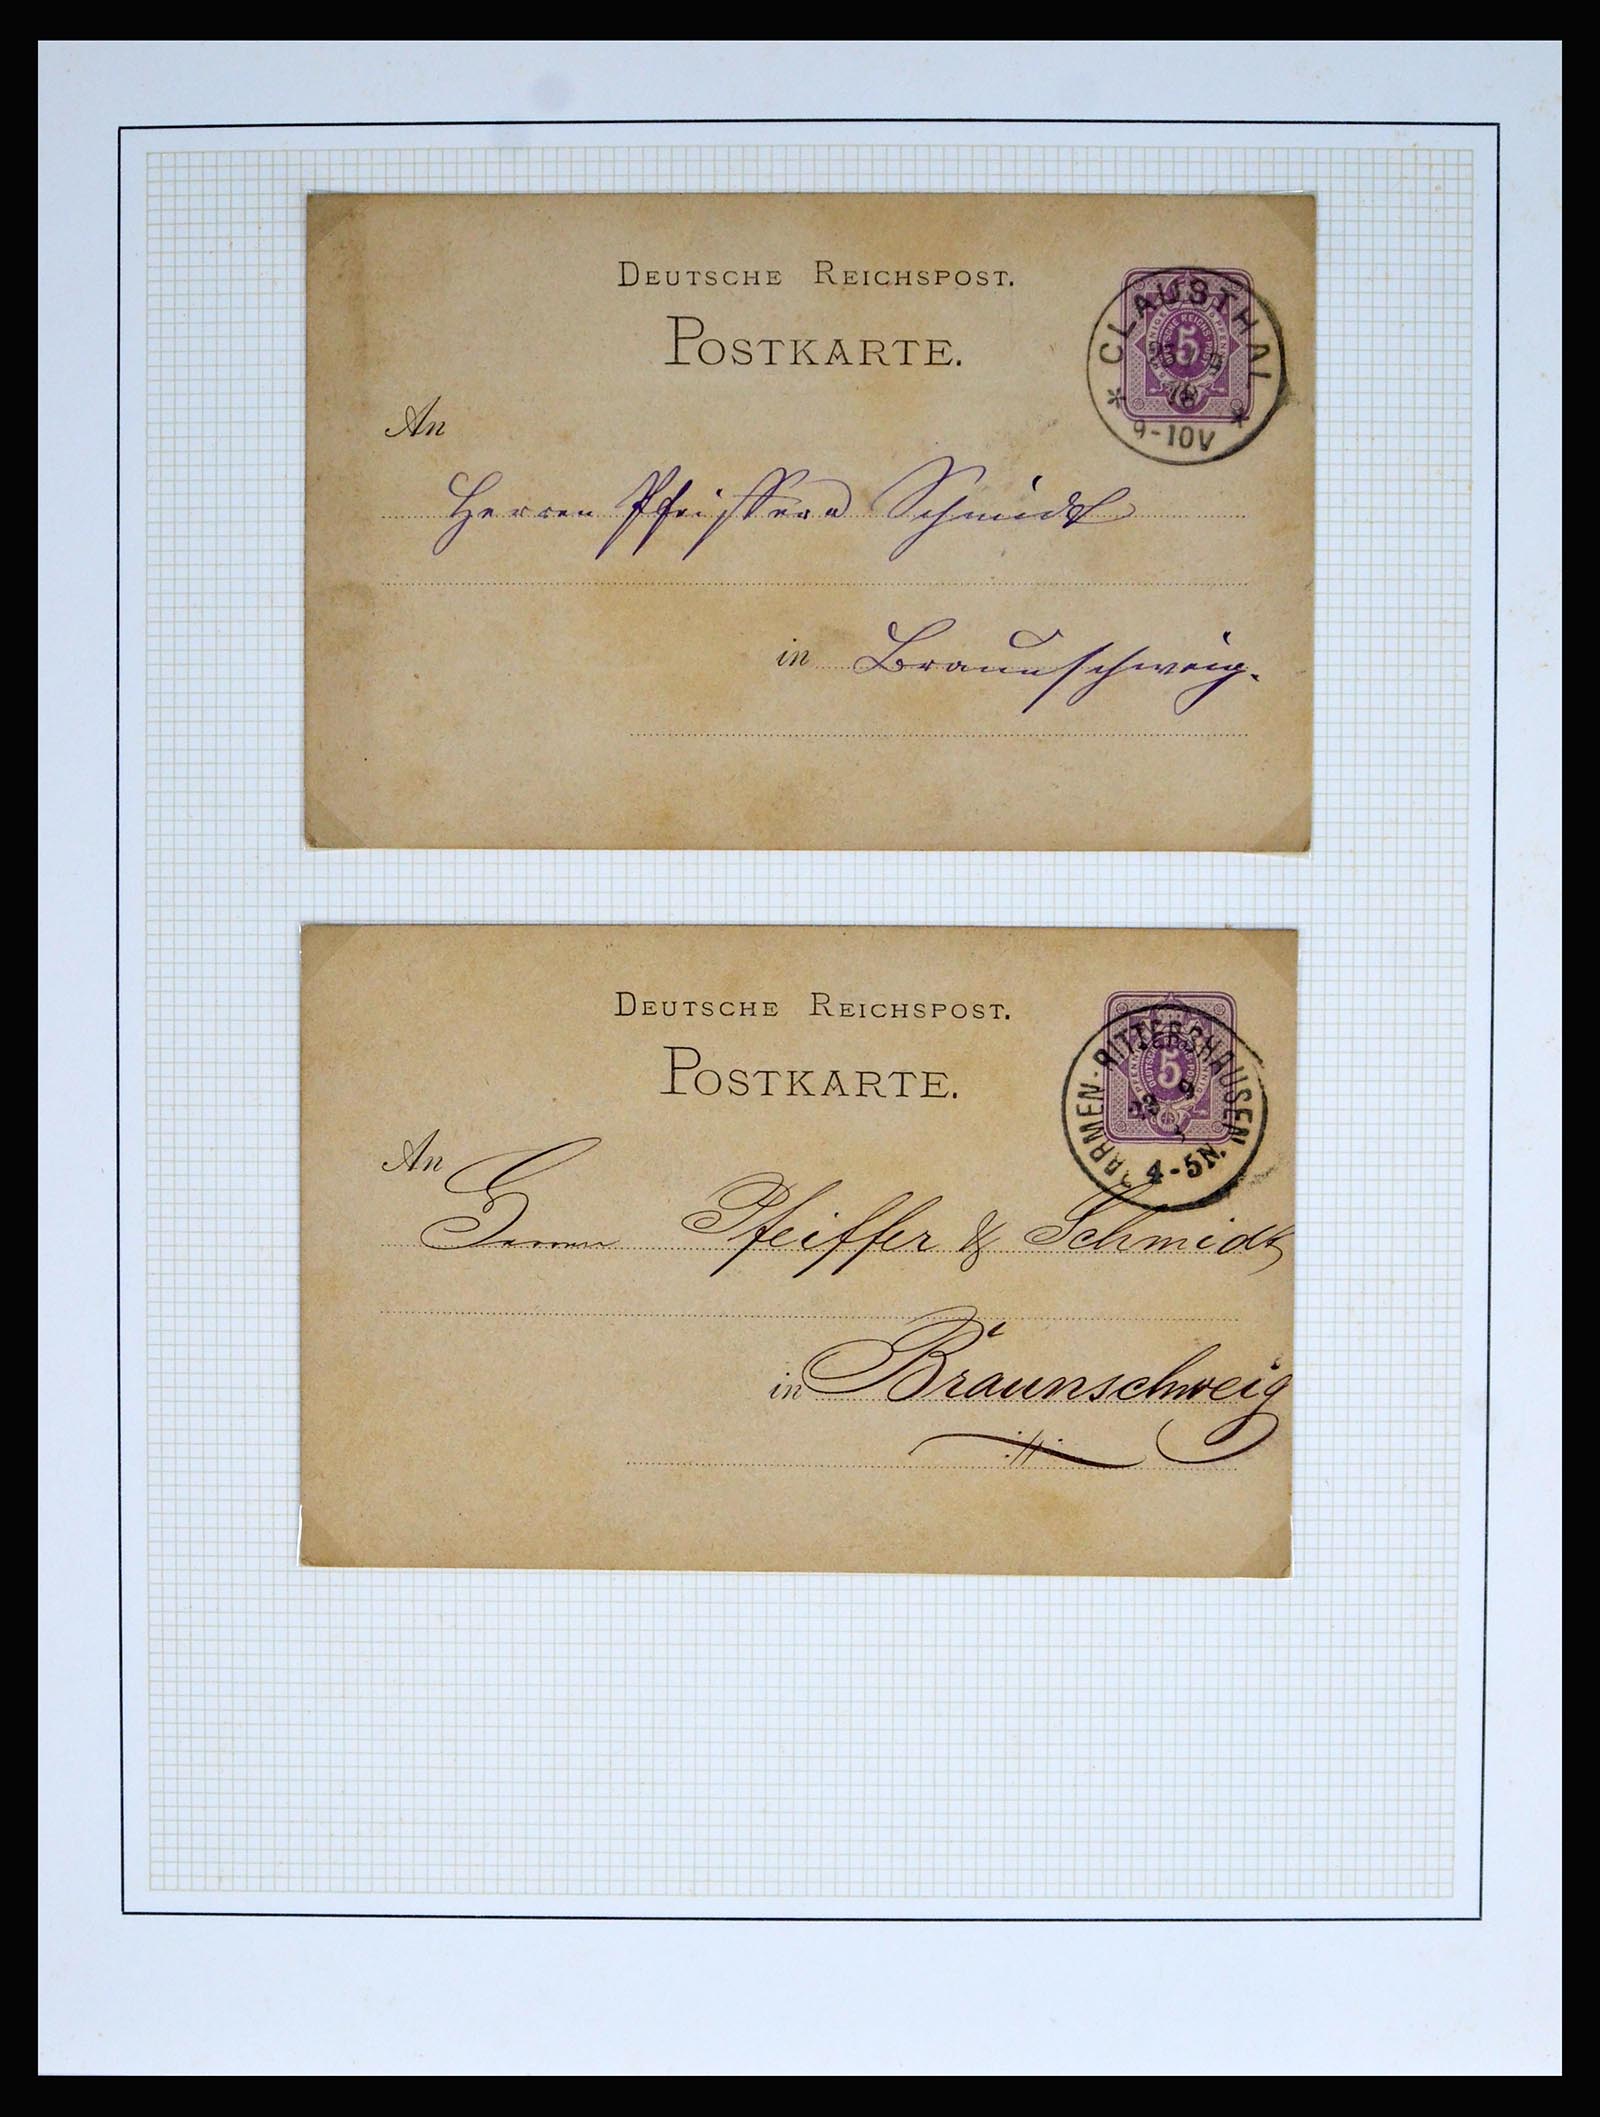 DEUTSCHE REICHSPOST.
POSTKARTE.
CLAUSTHAL
5
78
9-10V
An
Herren Pfeiffer & Schmidt
in Braunschweig.
DEUTSCHE REICHSPOST.
POSTKARTE.
BARMEN-RITTERSHAUSEN
5
23 9
4-5N.
An
Herren Pfeiffer & Schmidt
in Braunschweig